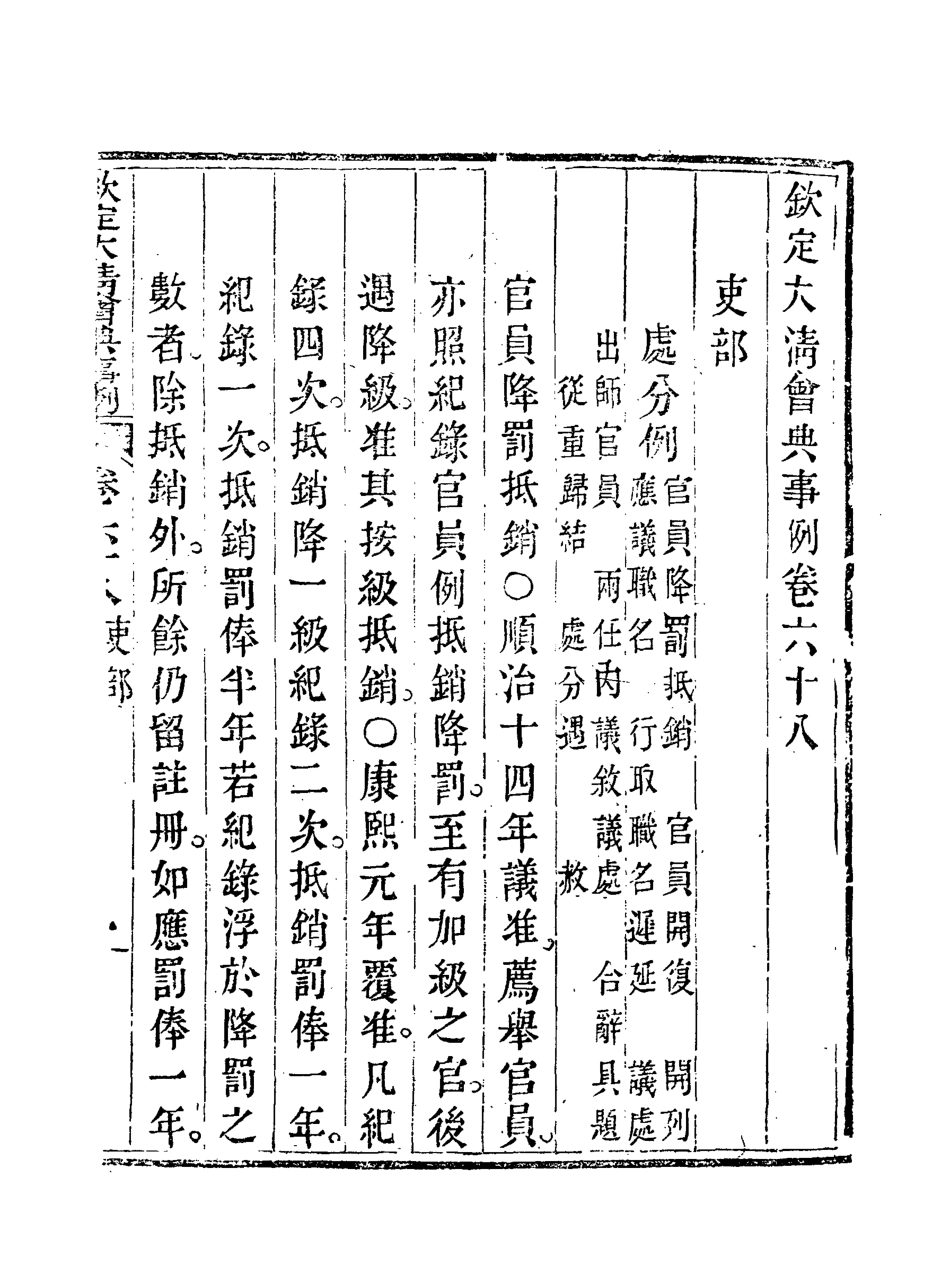 欽定大清會典事例卷六十八
吏部
處分例官員降罰抵銷 官員開復 開列
應議職名 行取職名遲延 議處
出師官員 兩任內議敘議處 合辭具題
從重歸結 處分遇 赦
官員降罰抵銷〇順治十四年議准。薦舉官員。
亦照紀錄官員例抵銷降罰。至有加級之官。後
遇降級。准其按級抵銷。〇康熙元年覆准。凡紀
錄四次。抵銷降一級紀錄二次。抵銷罰俸一年。
紀錄一次。抵銷罰俸半年若紀錄浮於降罰之
數者。除抵銷外。所餘仍留註冊。如應罰俸一年。
欽定大清會典事例 卷六十八 吏部 一